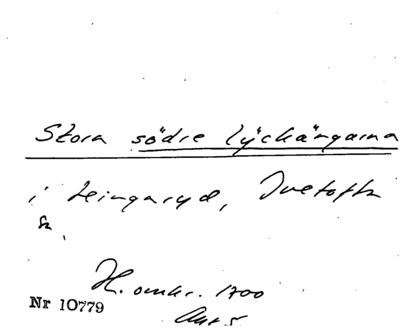 Stora södre lyckängarna
i Leingaryd, Tvetofta
sn.
H. omkr. 1700
Nr 10779